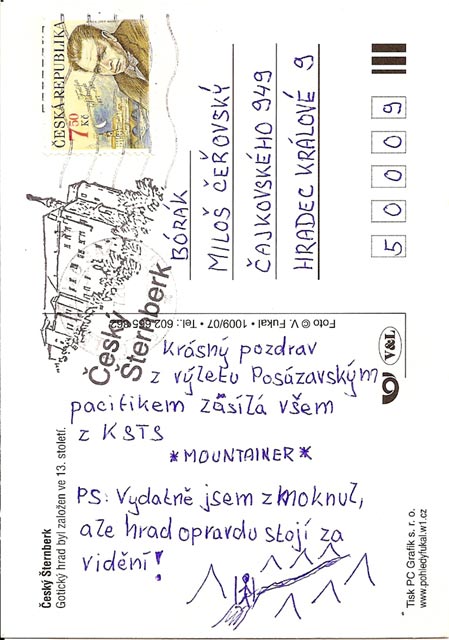 ČESKÁ REPUBLIKA
7,50
Kč
Český
Šternberk
BÓRAK
MILOŠ ČEŘOVSKÝ
ČAJKOVSKÉHO 949
HRADEC KRÁLOVÉ 9
5 0 0 0 9
Foto © V. Fukal • 1009/07 • Tel.: 602 665 862
V&L
Krásný pozdrav
z výletu Posázavským
pacifikem zasílá všem
z KSTS
*MOUNTAINER*
PS: Vydatně jsem zmoknul,
ale hrad opravdu stojí za
vidění!
Český Šternberk
Gotický hrad byl založen ve 13. století.
Tisk PC Grafik s. r. o.
www.pohledyfukal.w1.cz